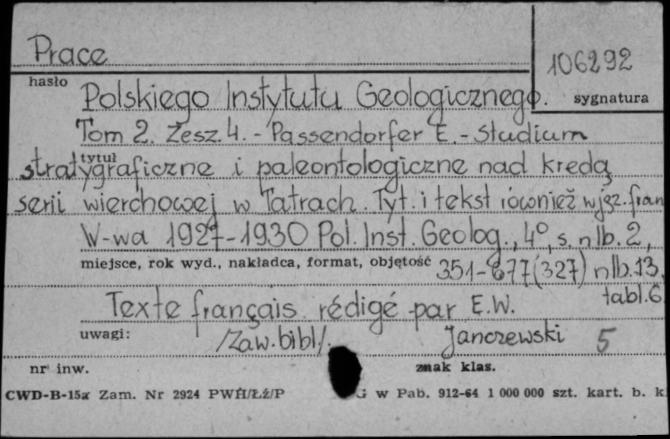 Prace
106292
hasło
Polskiego Instytutu Geologicznego.
sygnatura
Tom 2. Zesz. 4. - Passendorfer E. - Studium
tytuł
stratygraficzne i paleontologiczne nad kredą
serii wierchowej w Tatrach. Tyt. i tekst również w jęz. fran
W-wa 1927-1930 Pol. Inst. Geolog., 4°, s. nlb. 2,
miejsce, rok wyd., nakładca, format, objętość 351-677 (327) nlb. 13.
tabl. 6
Texte français rédigé par E.W.
uwagi: /Zaw. bibl/. Janczewski 5
nr inw. znak klas.
CWD-B-15a Zam. Nr 2924 PWH/Łź/P G w Pab. 912-64 1 000 000 szt. kart. b. k